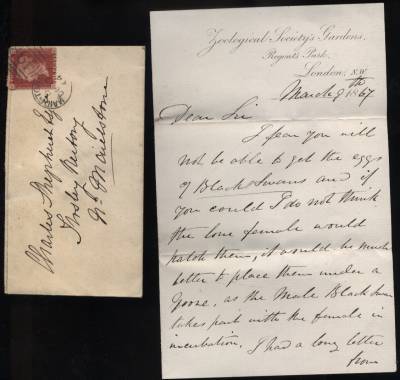 Charles Shepherd Esq
Rectory
Nr Maidstone
Zoological Society's Gardens,
Regents Park,
London, N.W.
March 9th 1867
Dear Sir
I fear you will
not be able to get the eggs
of Black Swans and if
you could I do not think
the lone female would
hatch them, it would be much
better to place them under a
Goose, as the Male Black Swan
takes part with the female in
incubation. I had a long letter
from